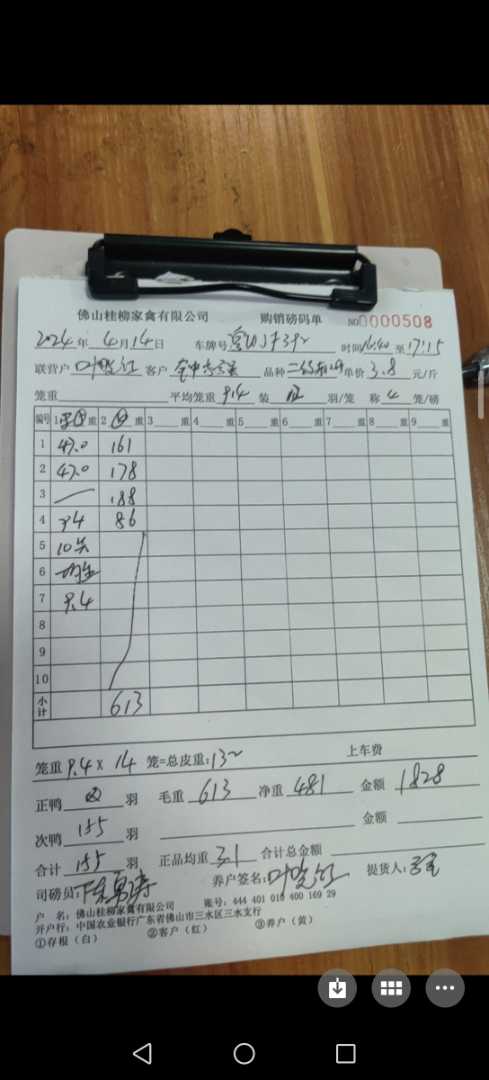 佛山桂柳家禽有限公司 购销磅码单 NO 0000508
2024年 4月14日 车牌号 时间16:40至17:15
联营户 叶 客户 品种 单价 3.8 元/斤
笼重 平均笼重 9.4 装 羽/笼 称 4 笼/磅
编号 1 重 2 重 3 重 4 重 5 重 6 重 7 重 8 重 9 重
1 47.0 161
2 47.0 178
3 188
4 94 86
5 10
6
7 9.4
8
9
10
小计 613
笼重 9.4 × 14 笼=总皮重: 132 上车费
正鸭 羽 毛重 613 净重 481 金额 1828
次鸭 155 羽 金额
合计 155 羽 正品均重 3.1 合计总金额
司磅员: 养户签名: 叶 提货人:
户 名: 佛山桂柳家禽有限公司 账号: 444 401 010 400 169 29
开户行: 中国农业银行广东省佛山市三水区三水支行
①存根(白) ②客户(红) ③养户(黄)